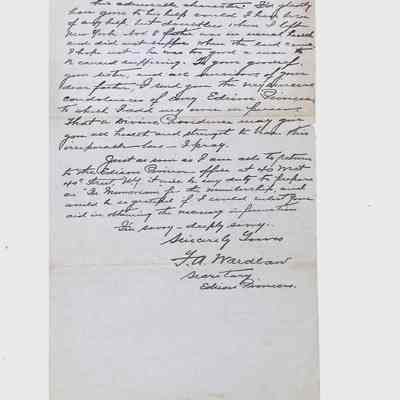 this admirable character. I'd gladly
have gone to his help could I have been
of any help, but
New York Nov 2 father was in usual health
and did not suffer when the end came.
I hope not - he was too good a man to
be caused suffering. To your grieved
your sister, and all survivors of your
dear father, I send you the very sincere
condolences of every Edison Pioneer
to which I add my own in
That a Divine Providence may give
you all health and strength to bear this
irreparable loss - I pray.
Just as soon as I am able to return
to the Edison Pioneer office at 40 West
40th Street, N.Y. it will be my duty to prepare
an "In Memoriam for the membership, and
would be so grateful if I could enlist your
aid in obtaining the necessary information
I'm sorry - deeply sorry.
Sincerely Yours
F. A. Wardlaw
Secretary
Edison Pioneers.